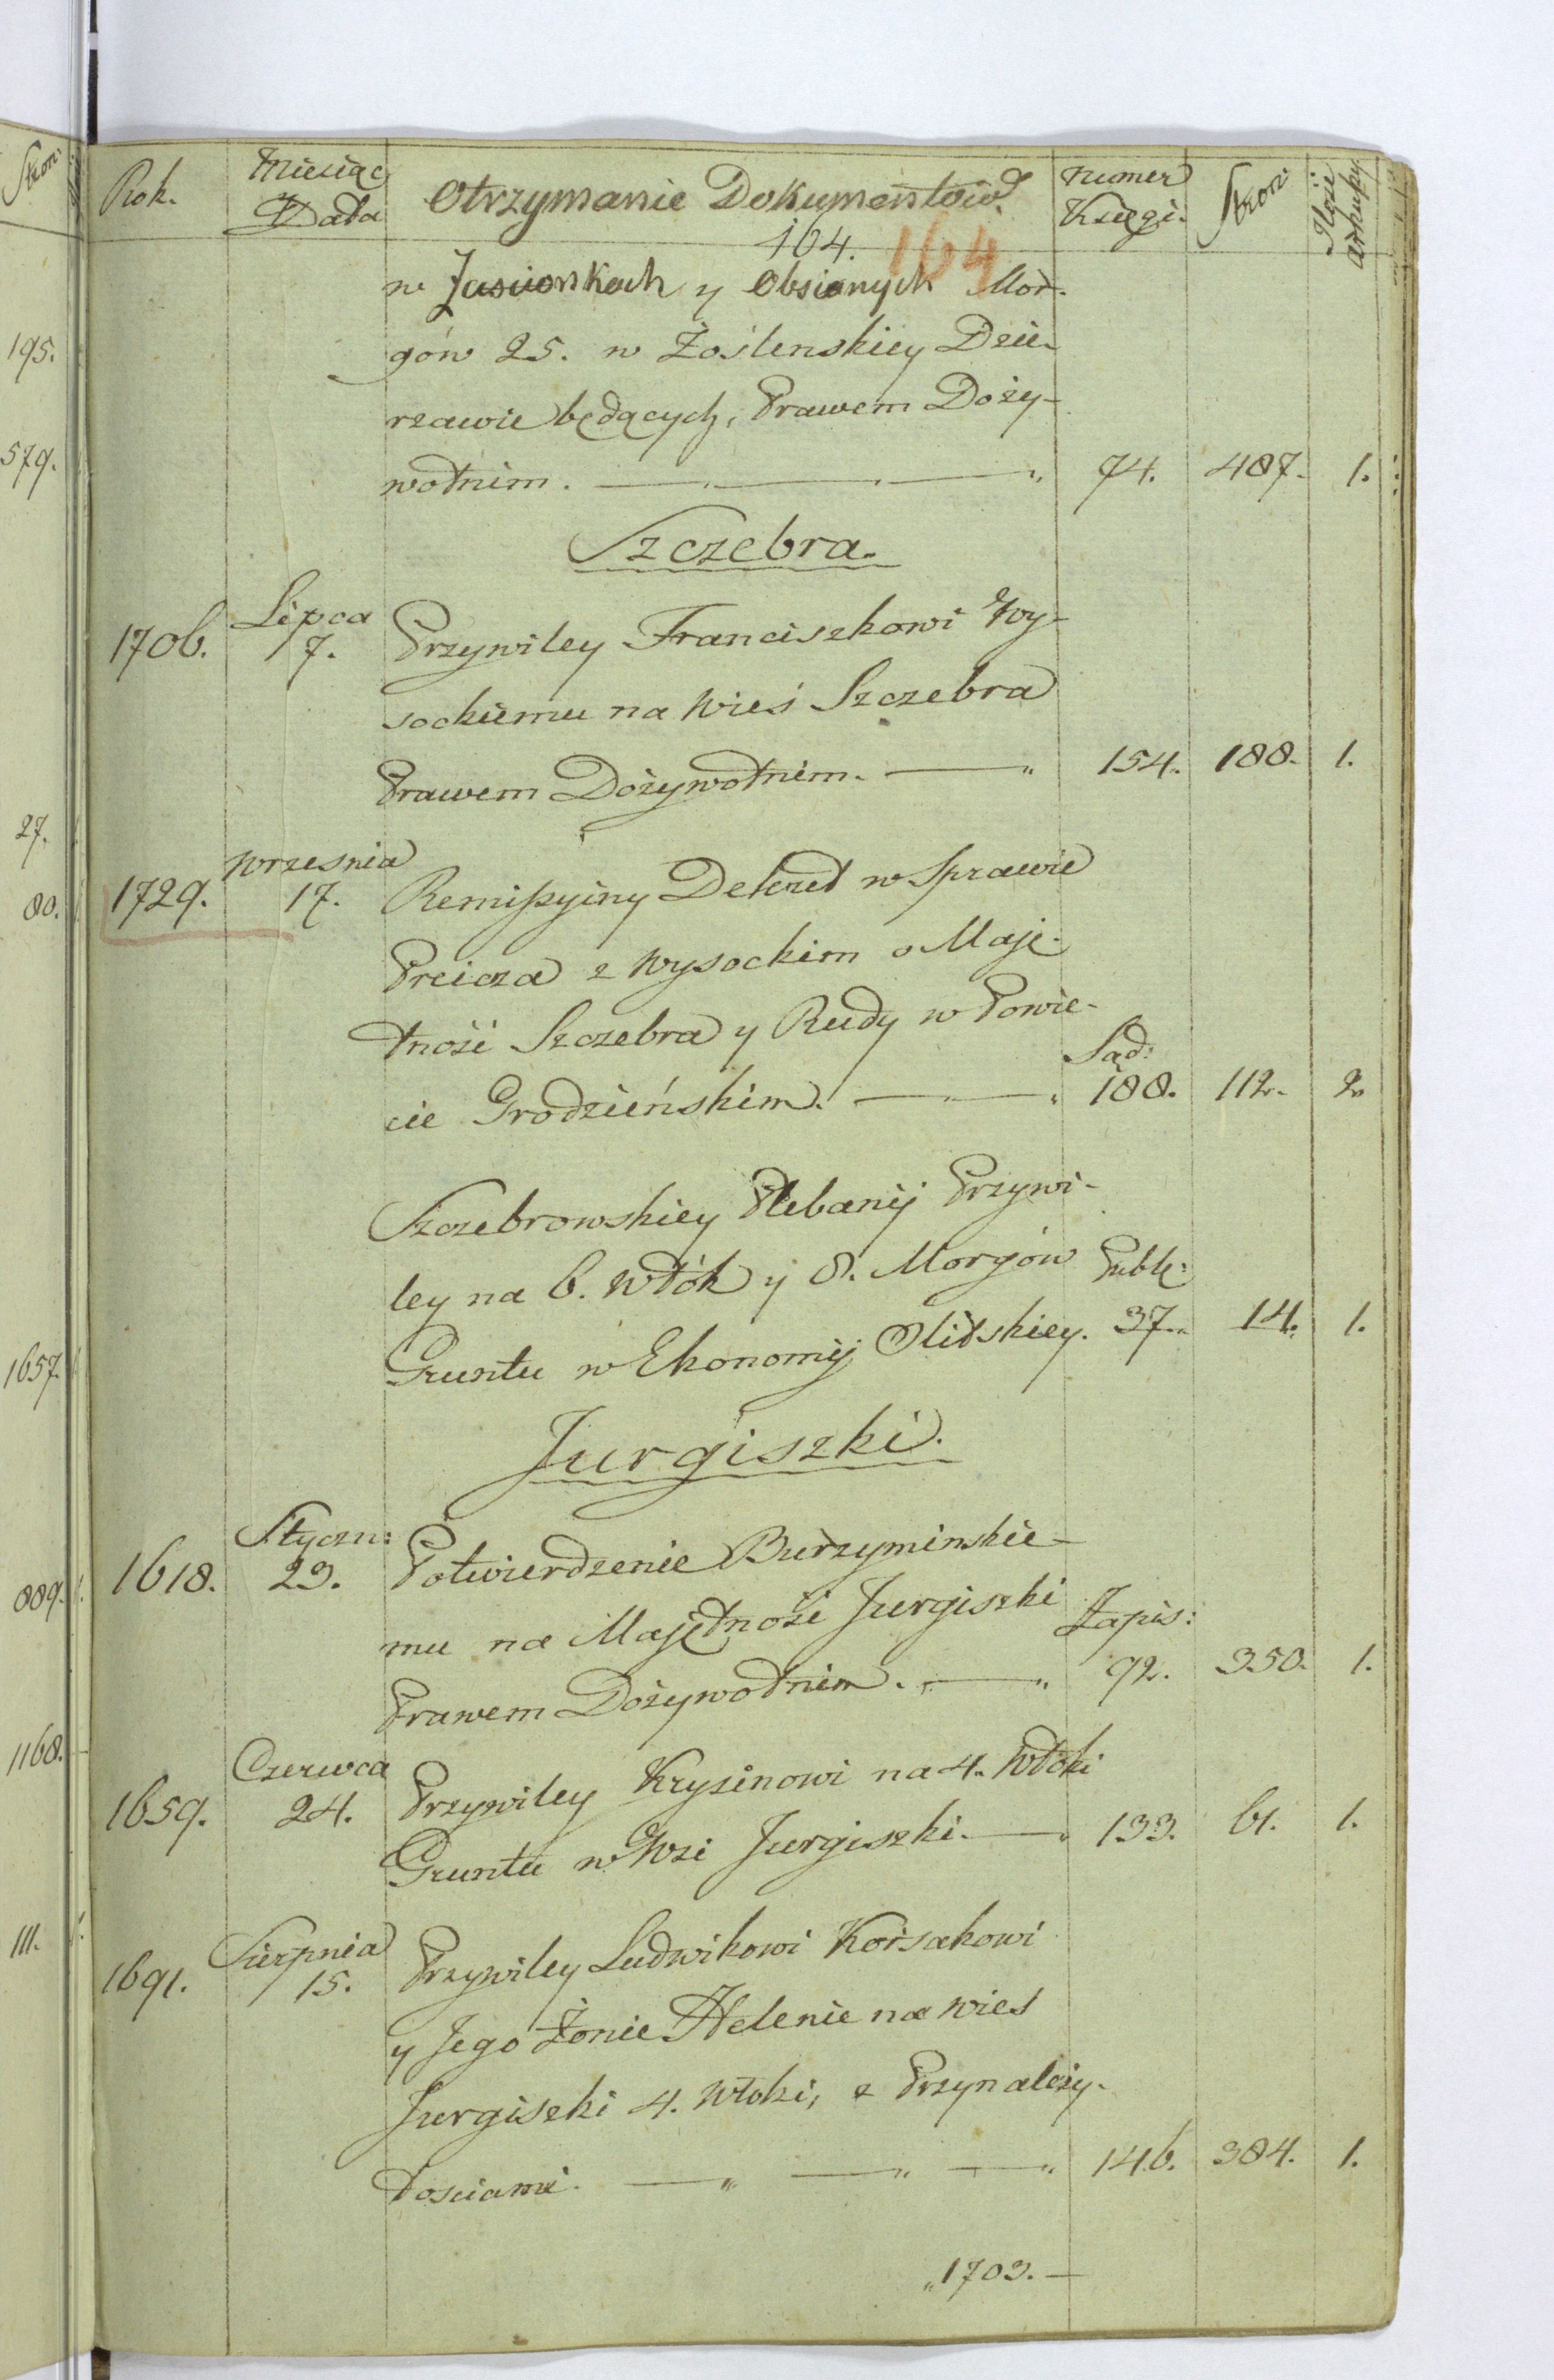 Stron:
195.
579.
27.
80.
1657.
889.
1168.
111.
Rok. Miesiąc Data Otrzymanie Dokumentów. Numer Księgi. Stron: Ilość arkuszy
104. 164
w Jasionkach y Obsianych Mor-
gów 25. w Żoślenskiey Dzie-
rzawie będących, Prawem Doży-
wotnim. 74. 487. 1.
Szczebra.
1706. Lipca 17. Przywiley Franciszkowi Wy-
sockiemu na Wieś Szczebra
Prawem Dożywotnim. 154. 188. 1.
1729. Wrzesnia 17. Remissyiny Dekret w Sprawie
Preicza z Wysockim o Maję-
tność Szczebra y Rudy w Powie-
cie Grodzieńskim. Sąd: 188. 112. 2.
Szczebrowskiey Plebanij Przywi-
ley na 6. Włók y 8. Morgów
Gruntu w Ekonomij Olitskiey. Publ: 37. 14. 1.
Jurgiszki.
1618. Styczn: 23. Potwierdzenie Burzyminskie-
mu na Majętność Jurgiszki
Prawem Dożywotnim. Zapis: 92. 350. 1.
1659. Czerwca 24. Przywiley Krysinowi na 4. Włóki
Gruntu w Wsi Jurgiszki. 133. 61. 1.
1691. Sierpnia 15. Przywiley Ludwikowi Korsakowi
y Jego Żonie Helenie na wies
Jurgiszki 4. Włoki, z Przynależy-
tosciami. 146. 384. 1.
1703.